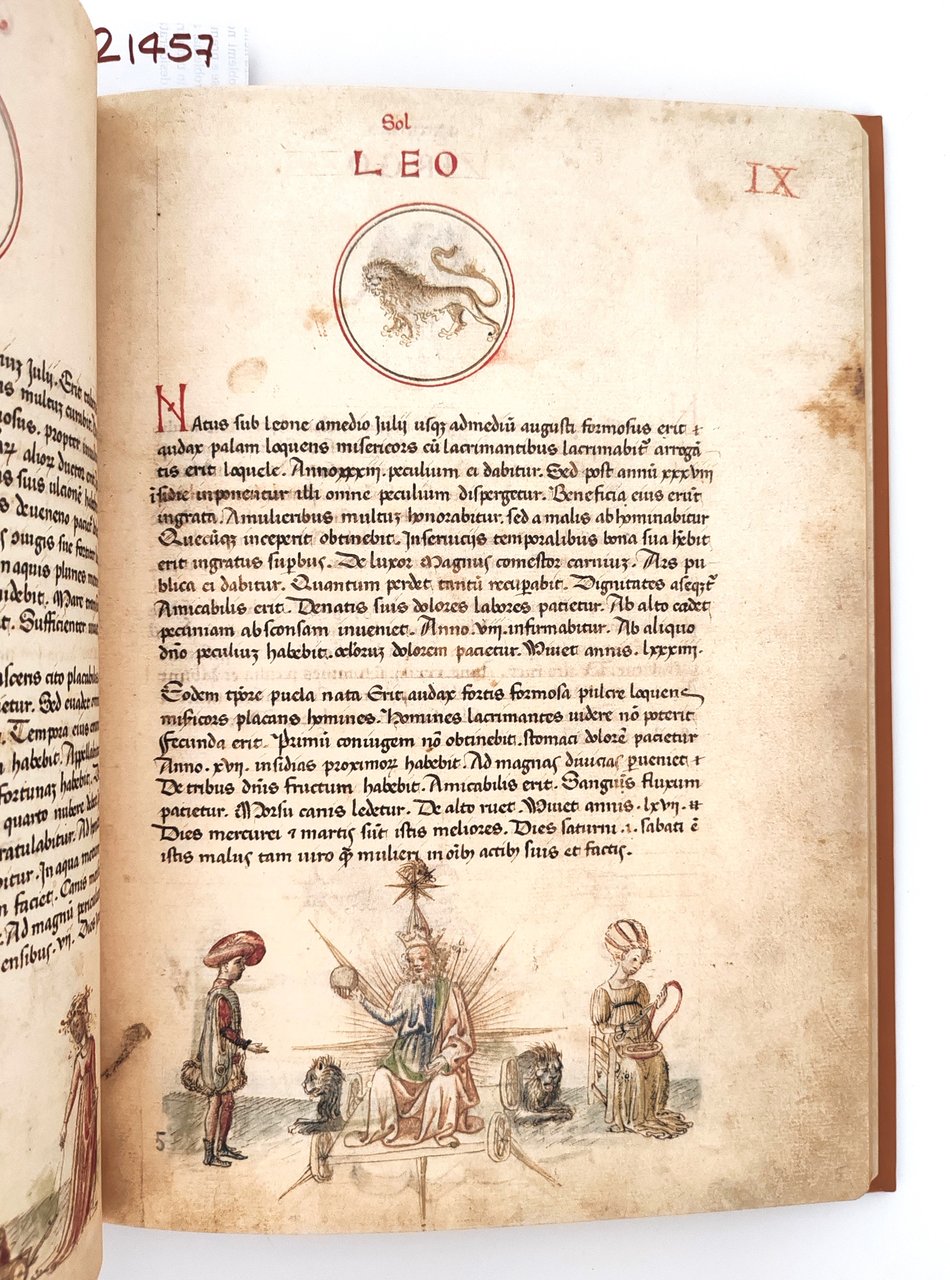 21457
Sol
LEO
IX
NAtus sub leone amedio Iulii usq3 admediū augusti formosus erit &
audax palam loquens misericors cū lacrimantibus lacrimabit᷒ arrogā
tis erit loquele. Anno xxxiii. peculium ei dabitur. Sed post annū xxxviii
insidie inponentur illi omne peculium dispergetur. Beneficia eius erūt
ingrata. Amulieribus multuz honorabitur. sed a malis abhominabitur
Quecūq3 inceperit obtinebit. Inseruiciis temporalibus bona sua hēbit
erit ingratus supbus. De luxor Magnus comestor carniuz. Ars pu
blica ei dabitur. Quantum perdet tantū recupabit. Dignitates
Amicabilis erit. Denatis suis dolores labores patietur. Ab alto cadet
pecuniam absconsam inueniet. Anno. viii. infirmabitur. Ab aliquo
dño peculiuz habebit. dolorem pacietur. Viuet annis. lxxxiiii.
Eodem tpore puela nata Erit audax fortis formosa pulcre loquens
misicors placans homines. Homines lacrimantes uidere nō poterit
Fecunda erit. Primū coniugem nō obtinebit. stomaci dolorē pacietur
Anno. xvii. insidias proximor habebit. Ad magnas diuicias pueniet &
De tribus dñis fructum habebit. Amicabilis erit. Sanguis fluxum
patietur. Morsu canis ledetur. De alto ruet. Viuet annis. lxvii.
Dies mercurei & martis sūt istis meliores. Dies saturni .i. sabati ē
istis malus tam uiro q3 mulieri in oib3 actib3 suis et factis.
5